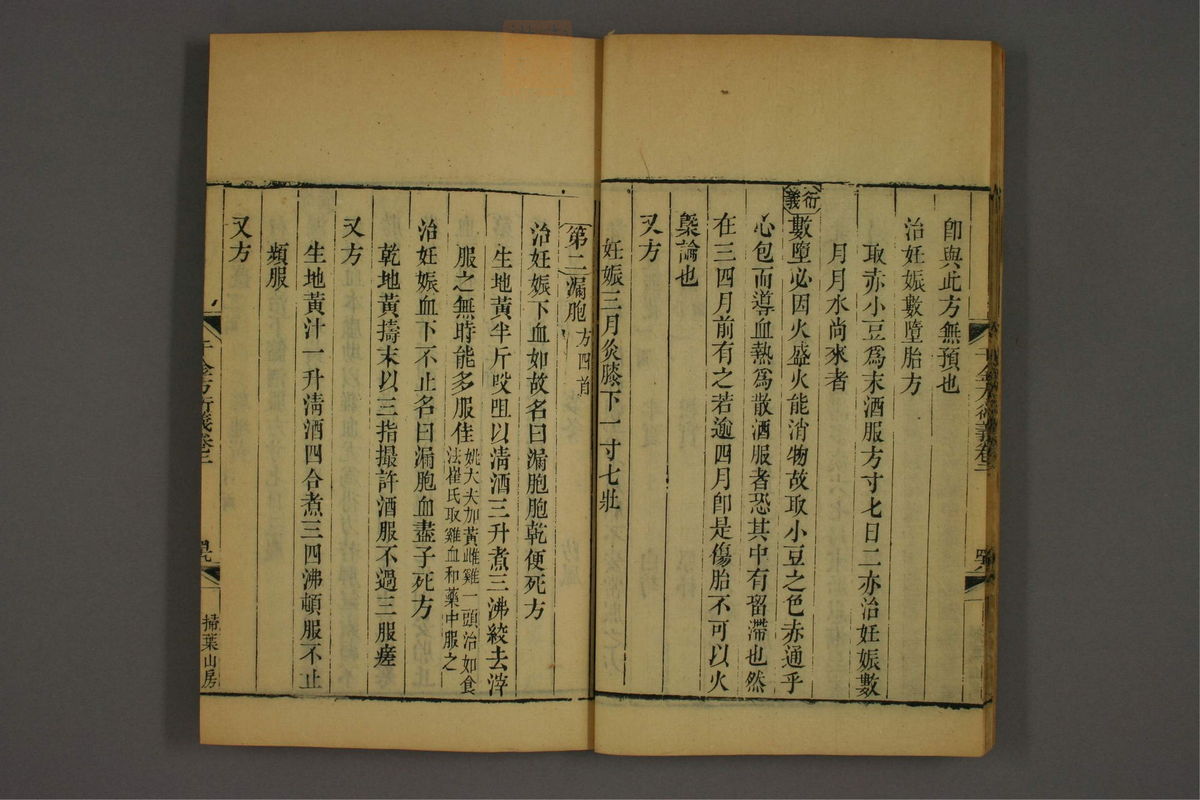 卽與此方無預也
治妊娠數墮胎方
取赤小豆爲末酒服方寸匕日二亦治妊娠數
月月水尚來者
衍義數墮必因火盛火能消物故取小豆之色赤通乎
心包而導血熱爲散酒服者恐其中有畱滯也然
在三四月前有之若逾四月卽是傷胎不可以火
槩論也
又方
妊娠三月灸膝下一寸七壯
第二漏胞方四首
治妊娠下血如故名曰漏胞胞乾便死方
生地黃半斤㕮咀以淸酒三升煮三沸絞去滓
服之無時能多服佳姚大夫加黃雌雞一頭治如食法崔氏取雞血和藥中服之
治妊娠血下不止名曰漏胞血盡子死方
乾地黃擣末以三指撮許酒服不過三服瘥
又方
生地黃汁一升淸酒四合煮三四沸頓服不止
頻服
又方
千金方衍義卷二
掃葉山房